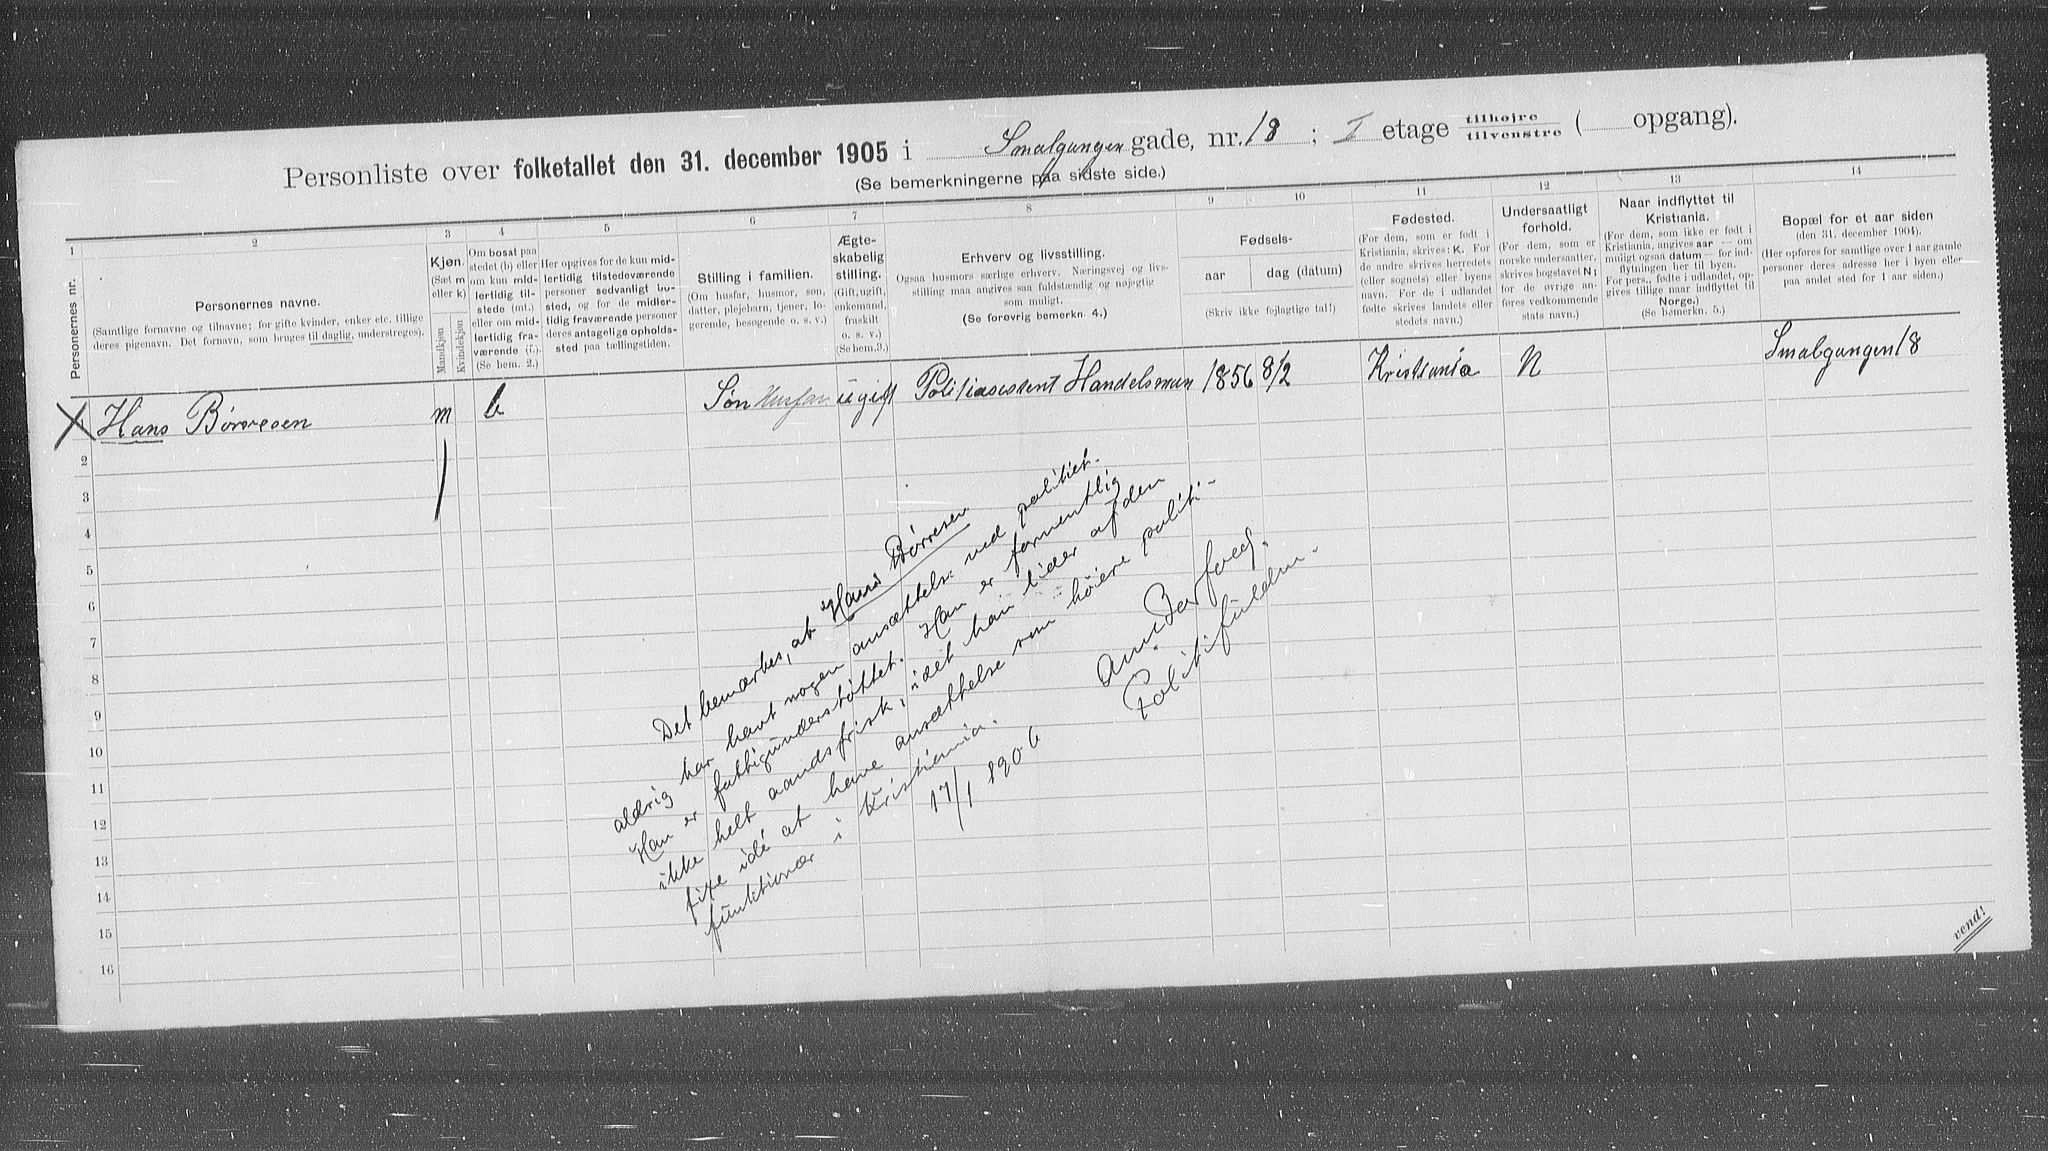 Personliste over folketallet den 31. december 1905 i Smalgangen gade, nr. 18 ; I etage tilhøjre tilvenstre ( opgang).
(Se bemerkningerne paa sidste side.)
1 2 3 4 5 6 7 8 9 10 11 12 13 14
Personernes nr.
Personernes navne.
(Samtlige fornavne og tilnavne; for gifte kvinder, enker etc. tillige
deres pigenavn. Det fornavn, som bruges til daglig, understreges).
Kjøn.
(Sæt m
eller k)
Mandkjøn
Kvindekjøn
Om bosat paa
stedet (b) eller
om kun mid-
lertidig til-
stede (mt.)
eller om mid-
lertidig fra-
værende (f.).
(Se bem. 2.)
Her opgives for de kun mid-
lertidig tilstedeværende
personer sedvanligt bo-
sted, og for de midler-
tidig fraværende personer
deres antagelige opholds-
sted paa tællingstiden.
Stilling i familien.
(Om husfar, husmor, søn,
datter, plejebarn, tjener, lo-
gerende, besøgende o. s. v.)
Ægte-
skabelig
stilling.
(Gift, ugift,
enkemand,
fraskilt
o. s. v.)
(Se bem.3.)
Erhverv og livsstilling.
Ogsaa husmors særlige erhverv. Næringsvej og livs-
stilling maa angives saa fuldstændig og nøjagtig
som muligt.
(Se forøvrig bemerkn. 4.)
Fødsels-
aar dag (datum)
(Skriv ikke fejlagtige tal!)
Fødested.
(For dem, som er født i
Kristiania, skrives: K. For
de andre skrives herredets
(eller sognets) eller byens
navn. For de i udlandet
fødte skrives landets eller
stedets navn.)
Undersaatligt
forhold.
(For dem, som er
norske undersaatter,
skrives bogstavet N;
for de øvrige an-
føres vedkommende
stats navn.)
Naar indflyttet til
Kristiania.
(For dem, som ikke er født i
Kristiania, angives aar — om
muligt ogsaa datum — for ind-
flytningen her til byen.
For pers., fødte i udlandet, op-
gives tillige naar indflyttet til
Norge.)
(Se bemerkn. 5.)
Bopæl for et aar siden
(den 31. december 1904).
(Her opføres for samtlige over 1 aar gamle
personer deres adresse her i byen eller
paa andet sted for 1 aar siden.)
X Hans Børresen m b Søn Husfar ugift Politiassistent Handelsman 1856 8/2 Kristiania N Smalgangen 18
2
3
4
5
6
7
8
9
10
11
12
13
14
15
16
Det bemærkes, at Hans Børresen
aldrig har havt nogen ansættelse ved politiet.
Han er fattigunderstøttet. Han er formentlig
ikke helt aandsfrisk, idet han lider af den
fixe idé at have ansættelse som høiere politi-
funktionær i Kristiania.
17/1 1906
Politifuldm.
vend!